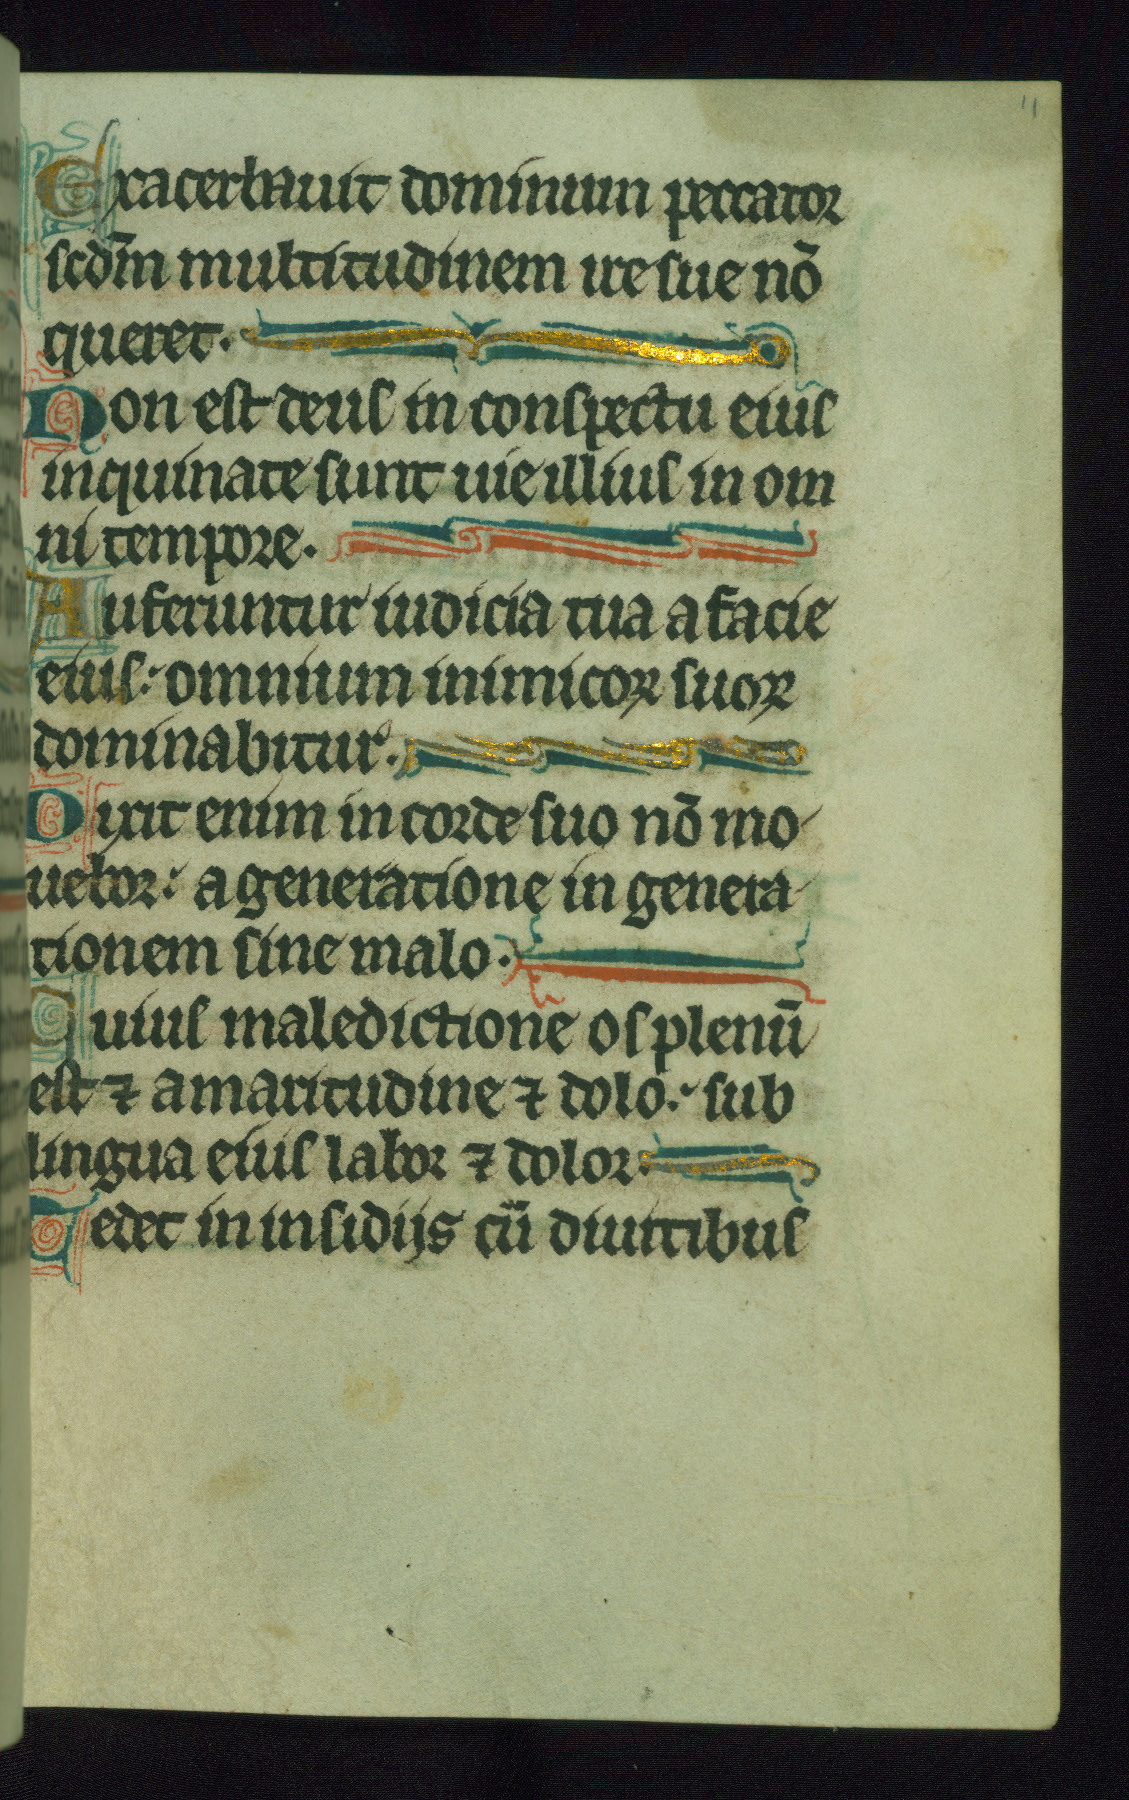 11
Exacerbauit dominum peccator
scdm̄ multitudinem ire sue nō
queret.
Non est deus in conspectu eius
inquinate sunt uie illius in om
ni tempore.
Auferuntur iudicia tua a facie
eius: omnium inimicoꝝ suoꝝ
dominabitur.
Dixit enim in corde suo nō mo-
uebor: a generatione in genera-
tionem sine malo.
Cuius maledictione os plenū
est ⁊ amaritudine ⁊ dolo: sub
lingua eius labor ⁊ dolor.
Sedet in insidijs cū diuitibus